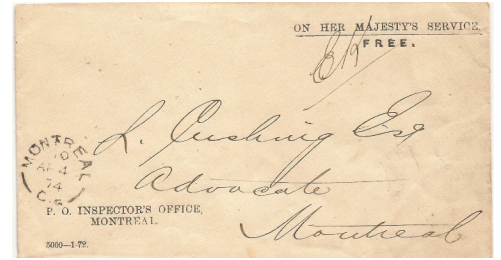 ON HER MAJESTY'S SERVICE,
FREE.
L. Cushing Esq
Advocate
Montreal
MONTREAL
AP 4
74
P. O. INSPECTOR'S OFFICE,
MONTREAL.
5000—1-72.